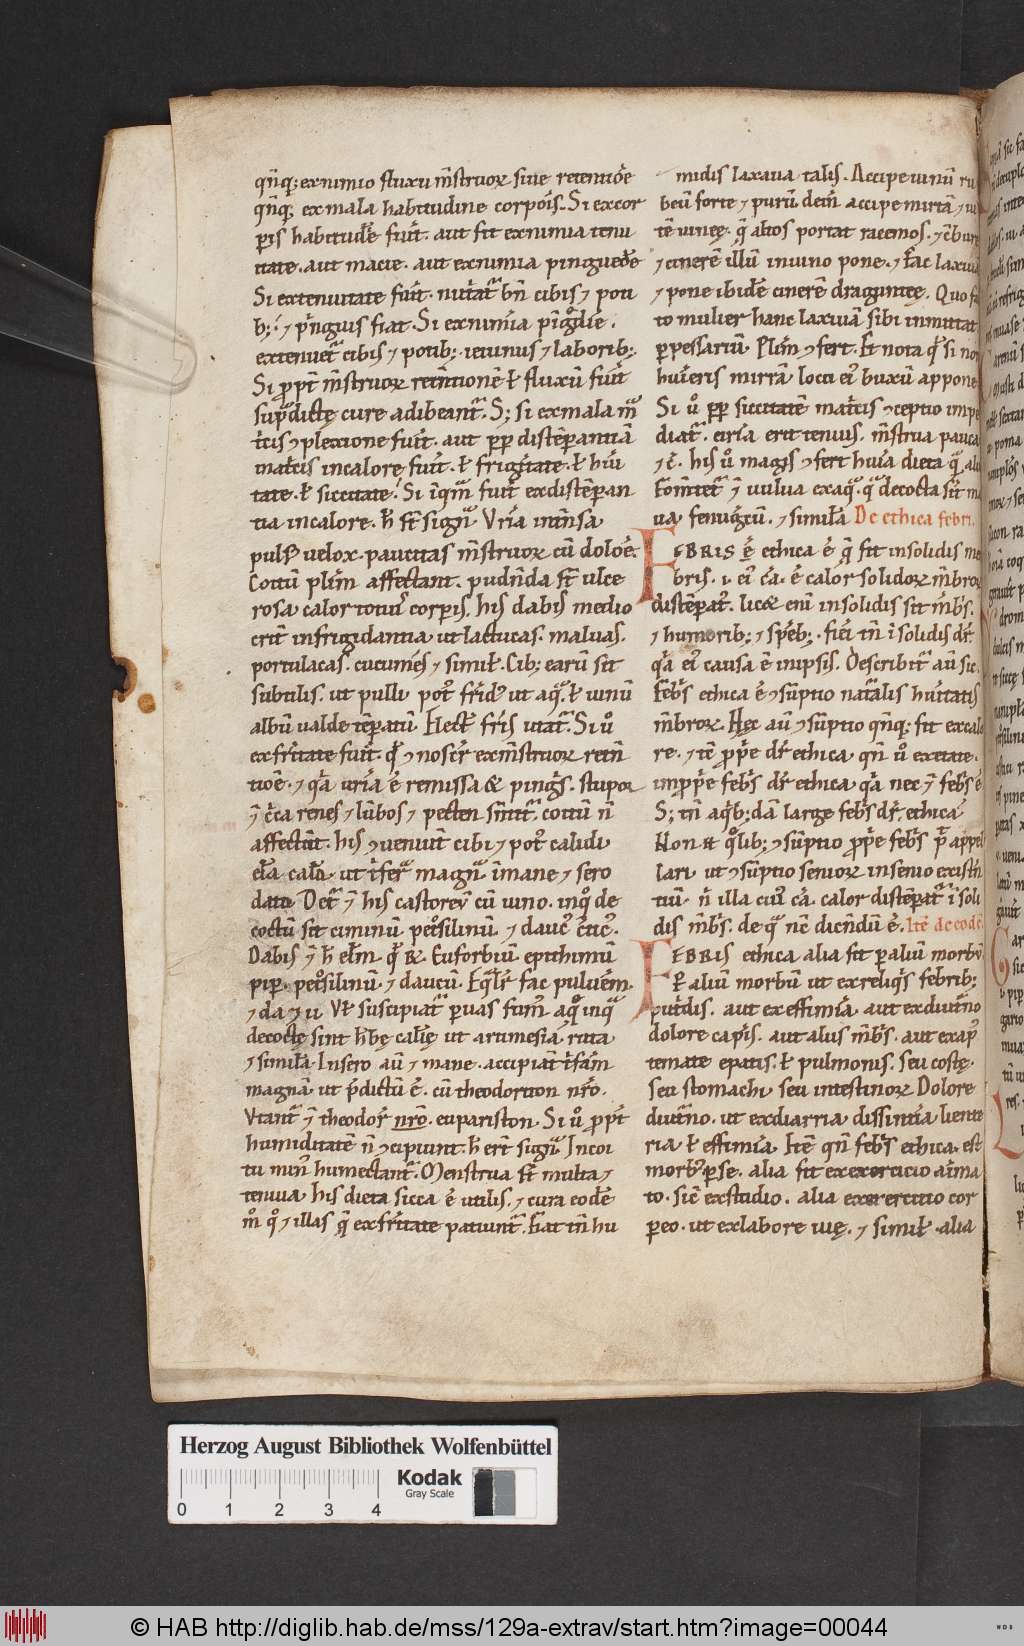 qn̄q; ex nimio fluxu m̄struoꝝ siue retentiōe
qn̄q; ex mala habitudine corporis. Si ex cor
ꝑis habitudīe fuīt. aut fit ex nimia tenu
itate. aut macie. aut ex nimia pinguedīe
Si ex tenuitate fuīt. nutⁱat᷑ bn̄ cibis ⁊ poti
b; ⁊ pⁱnguis fiat. Si ex nimia pīgᵒdīe.
extenuet᷑ cibis ⁊ potib; ieiunus ⁊ laborib;.
Si ꝓpt̄ m̄struoꝝ retn̄tionē ł fluxū fuīt
sup̄dictę cure adibeant᷑. S; si ex mala mᵃ
tⁱcis ꝯplexione fuīt. aut ꝓp̄ distēperantiā
matⁱcis in calorę fuīt. ł frigⁱtate. ł hūi
tate. ł siccitate. Si īqm̄ fuīt ex distēperan
tia in calore. h̄ s̄t signᵃ Vrīa intensa
puls̄ velox. paucitas m̄struoꝝ cū dolōe.
Coitū plⁱm affectant. pudn̄da s̄t ulce
rosa calor totiꝰ corꝑis. his dabis medio
crit̄ infrigidantia ut lactucas. maluas.
portulacas. cucumēs ⁊ simił. Cib; earū sit
subtilis. ut pulli potꝰ frⁱdꝰ ut aqᵃ. ł uinū
albū ualde tēperatū. Elect᷑ frⁱs utat᷑. Si ů
ex frⁱtate fuīt. qᵈ ꝯnoscⁱt᷑ ex m̄struoꝝ retn̄
tiōe. ⁊ qᵃ urīa ē remissa & pinguis. stupor
ī cⁱca renes ⁊ lūbos ⁊ pecten sn̄tit᷑. coitū n̄
affectāt. his ꝯueniūt cibi ⁊ potꝰ calidi
ełla calⁱd. ut īfⁱᵃ magnᵃ ī mane ⁊ sero
data. Det᷑ ī his castoreū cū uino. in qᵒ de
coctū sit ciminū petⁱsilinū ⁊ daucꝰ c̄ticꝰ.
Dabis ī h̄ ełm. qᵈ R Euforbiū epithimū
pip̱. petⁱsilinū. ⁊ daucū. Eqᵃlr̄ fac puluēm.
⁊ da ꝫ ii. Vł suscipiat᷑ ꝑuas fumꝰ aqᵉ in qᵃ
decoctę sint h̄bę calⁱdę ut artimesia. ruta
⁊ similⁱa. In sero aū ⁊ mane. accipiāt t̄fām
magnā ut p̄dictū ē. cū theodoriton nr̄o.
Vtant᷑ ī theodor̄ nr̄o. eupariston. Si ů ꝓpt̄
humiditatē n̄ ꝯcipiunt. h̄ erūt signᵃ In coi
tu miⁿ humectant᷑. Menstrua s̄t multa ⁊
tenuia. his dieta sicca ē utilis. ⁊ cura eodē
mᵒ qᵒ ⁊ illas q̄ ex frⁱtate patiunt᷑. Fiat īn hu
midis laxaua talis. Accipe uinū ru
beū forte ⁊ purū. dein̄ accipe mirtā ⁊ ui
tē uineę. q̄ altos portat racemos. ⁊ c̄bure
⁊ cinerē illū in uino pone. ⁊ fac laxiuā
⁊ pone ibidē cinerē draguntee. Quo fac
to mulier hanc laxiuā sibi inmittat
ꝑ pessariū. Plⁱm ꝯfert. Et nota qᵈ si non
hūieris mirrā loco eiꝰ buxū appone.
Si ů ꝓp̄ siccitatē matⁱcis ꝯceptio impe
diat᷑. urīa erit tenuis. m̄strua pauca
⁊ c̄. his ů magis ꝯfert huīa dieta qᵃ alia
Fomⁿtet᷑ ī uulua ex aqᵃ. qᵃ decocta sit mal
ua fenugⁱcū. ⁊ similⁱa De ethica febri.
FEBRIS ē ethica ē q̄ fit in solidis mē
bris. i. eiꝰ cā. ē calor solidoꝝ m̄broꝝ
distēperatꝰ. licet eni in solidis sit m̄bⁱs.
⁊ humorib; ⁊ sp̄eb;. fīeri tn̄ ī solidis dr̄
qᵃ eiꝰ causa ē in ipsis. Describit᷑ aū sic.
Febⁱs ethica ē ꝯsūptio natⁱalis huītatis
m̄broꝝ. Hęc aū ꝯsūptio qn̄q; fit ex calo
re. ⁊ tē ꝓp̄e dr̄ ethica. qn̄ ů ex etate.
imꝓp̄e febⁱs dr̄ ethica. qᵃ nec ī febⁱs ē
S; tn̄ aqⁱb;dā large febⁱs dr̄ ethica.
Non ē qᵒlib; ꝯsūptio ꝓp̄e febⁱs p̄ appel
lari. ut ꝯsūptio senioꝝ in senio existn̄
tiū. n̄ illa cuiꝰ cā. calor distēperat᷑ ī soli
dis m̄bⁱs. de qᵃ nc̄ dicēdū ē. Itē de eodē.
FEBRIS ethica alia fit ꝑ aliū morbū
Ꝑ aliū morbū ut ex reliqⁱs febrib;
putⁱdis. aut ex effimⁱa. aut ex diutⁱno
dolore capⁱs. aut aliis m̄bⁱs. aut ex ap̱
temate epatis. ł pulmonis. seu costę.
seu stomachi seu intestinoꝝ Dolore
diutⁱno. ut ex diarria dissintⁱa liente
ria ł effimia. Itē qn̄ febⁱs ethica. est
morbꝰ ꝑ se. alia fit ex exercicio aīma
to. sic̄ ex studio. alia ex exercitio cor
ꝑeo. ut ex labore uię. ⁊ simił. alia
Herzog August Bibliothek Wolfenbüttel
0 1 2 3 4
Kodak
Gray Scale
© HAB http://diglib.hab.de/mss/129a-extrav/start.htm?image=00044